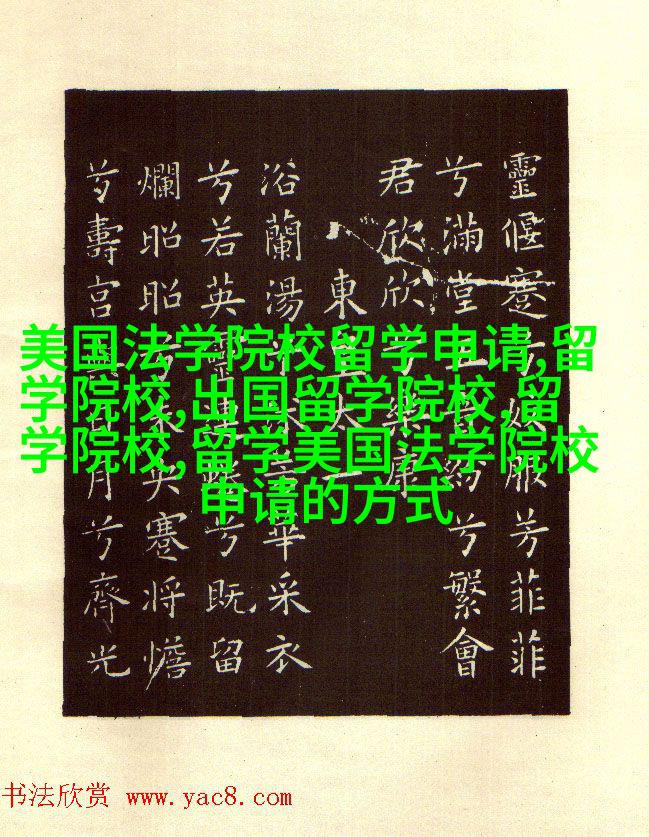 美国法学院校留学申请,留
学院校,出国留学院校,留
学院校,留学美国法学院校
申请的方式
靈偃蹇兮姣服芳菲菲
兮滿堂五音紛兮繁會
君欣欣兮樂康
東皇太一
浴蘭湯兮沐芳華采衣
兮若英靈連蜷兮既留
爛昭昭兮未央蹇將憺
兮壽宮與日月兮齊光
书法欣赏 www.yac8.com